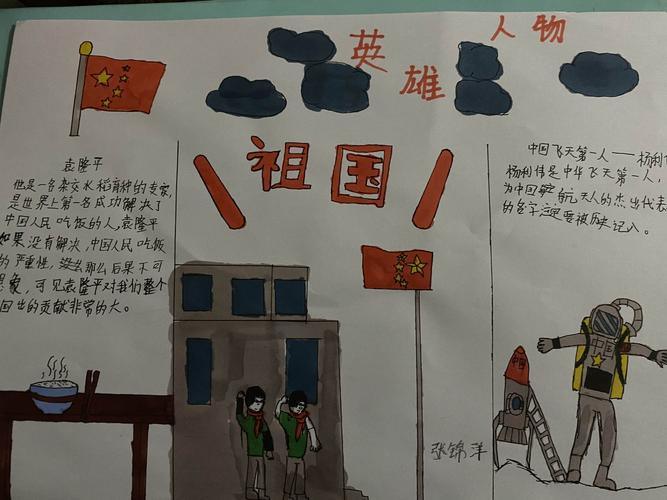 英雄人物
祖国
袁隆平
他是一名杂交水稻育种的专家,
是世界上第一名成功解决了
中国人民吃饭的人,袁隆平
如果没有解决,中国人民吃饭
的严重性,那么后果不可
想象,可见袁隆平对我们整个
国出的贡献非常的大。
中国飞天第一人——杨利伟
杨利伟是中华飞天第一人,
为中国航天人的杰出代表
的名字注定要被历史记入。
中国
中国
张锦洋